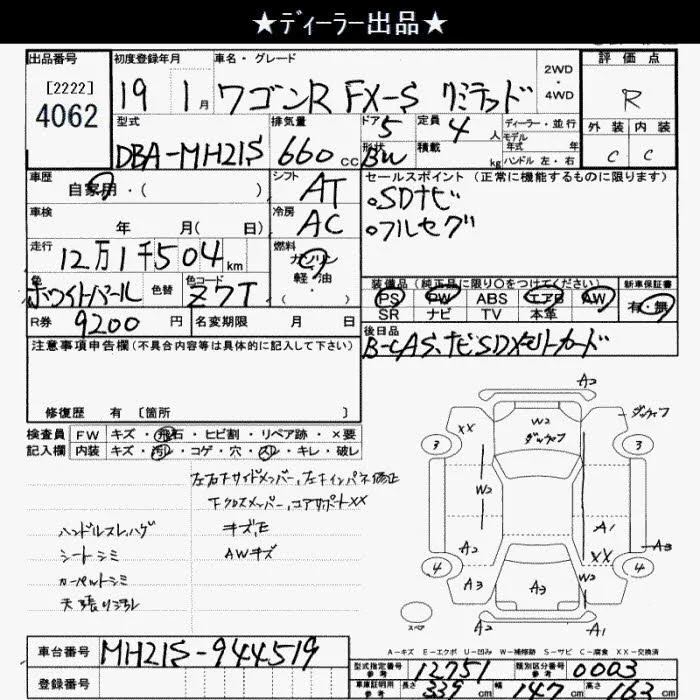 ★ディーラー出品★
出品番号
[2222]
4062
初度登録年月
19 1月
車名・グレード
ワゴンR FX-S リミテッド
2WD
4WD
評価点
R
外装 内装
C C
型式
DBA-MH21S
排気量
660cc
ドア 5
形状
BW
定員 4人
積載 kg
ディーラー・並行
モデル
年式 年
ハンドル 左・右
車歴
自家用・( )
シフト
AT
車検
年 月( 日)
冷房
AC
走行
12万1千504km
燃料
ガソリン
軽・油
( )
色
ホワイトパール
色替
色コード
Z7T
R券 9200円
名変期限 月 日
セールスポイント(正常に機能するものに限ります)
○SDナビ
○フルセグ
装備品(純正品に限り○をつけてください)
PS PW ABS エアB AW
SR ナビ TV 本革
新車保証書
有・無
後日品
B-CAS、ナビSDメモリーカード
注意事項申告欄(不具合内容等は具体的に記入して下さい)
修復歴 有 [箇所 ]
検査員
記入欄
FW キズ・飛石・ヒビ割・リペア跡・×要
内装 キズ・汚レ・コゲ・穴・スレ・キレ・破レ
左右Fサイドメンバー、左Fインパネ修正
Fクロスメンバー、コアサポートXX
キズ、E
AWキズ
ハンドルスレ、ハゲ
シートシミ
カーペットシミ
天張り汚れ
A2
XX
W2
3
3
W2
A2
A1
XX
A3
4
4
A3
A3
W2
A2
A1
スペア
A-キズ E-エクボ U-凹み W-補修跡 S-サビ C-腐食 XX-交換済
車台番号
MH21S-944519
登録番号
型式指定番号
参考
12751
類別区分番号
参考
0003
車庫証明用
参考
長さ 339cm
幅 147cm
高さ 163cm